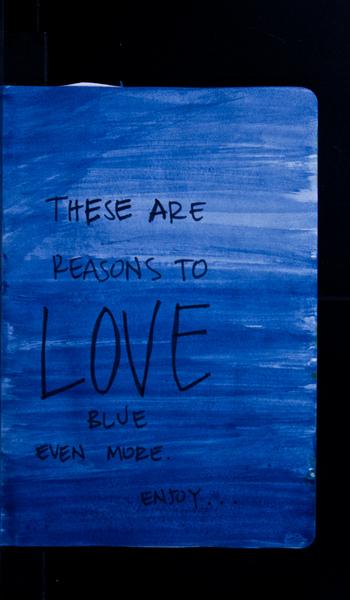 THESE ARE
REASONS TO
LOVE
BLUE
EVEN MORE.
ENJOY...